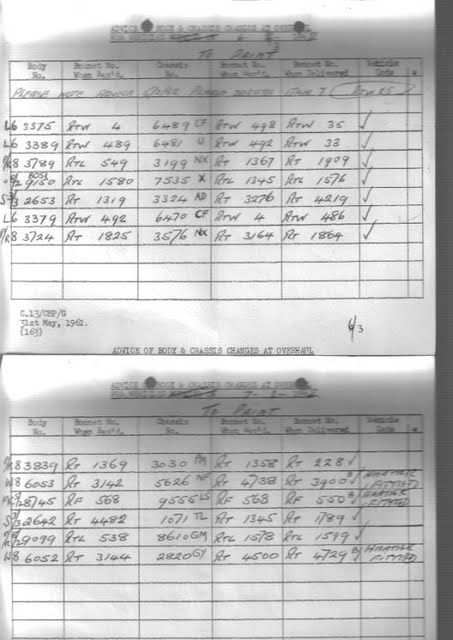 ADVICE OF BODY & CHASSIS CHANGES AT OVERHAUL
TO PAINT
Body No. Bonnet No. When Rec'd. Chassis No. Bonnet No. When Rec'd. Bonnet No. When Delivered Vehicle Code
PLEASE NOTE ADVICE
L6 3375 RTW 4 6489 CF RTW 498 RTW 35 ✓
L6 3389 RTW 489 6481 U RTW 492 RTW 33 ✓
8 3789 RTL 549 3199 NX RT 1367 RT 1909 ✓
8051
9150 RTL 1580 7535 X RTL 1345 RTL 1576 ✓
2653 RT 1319 3324 AD RT 3276 RT 4219 ✓
L6 3379 RTW 492 6470 CF RTW 4 RTW 486 ✓
8 3724 RT 1825 3576 NX RT 3164 RT 1864 ✓
C.13/CHP/G
31st May, 1961.
(163)
6/3
ADVICE OF BODY & CHASSIS CHANGES AT OVERHAUL
ADVICE OF BODY & CHASSIS CHANGES AT OVERHAUL
TO PAINT
Body No. Bonnet No. When Rec'd. Chassis No. Bonnet No. When Rec'd. Bonnet No. When Delivered Vehicle Code
8 3839 RT 1369 3030 RT 1358 RT 228 ✓
W8 6053 RT 3142 5626 RT 4738 RT 3900 HEATER FITTED
8745 RF 568 9555 LS RF 568 RF 550 HEATER FITTED
2642 RT 4482 1071 TL RT 1345 RT 1789 ✓
9099 RTL 538 8610 GM RTL 1578 RTL 1599 ✓
W8 6052 RT 3144 2820 GY RT 4500 RT 4729 HEATER FITTED